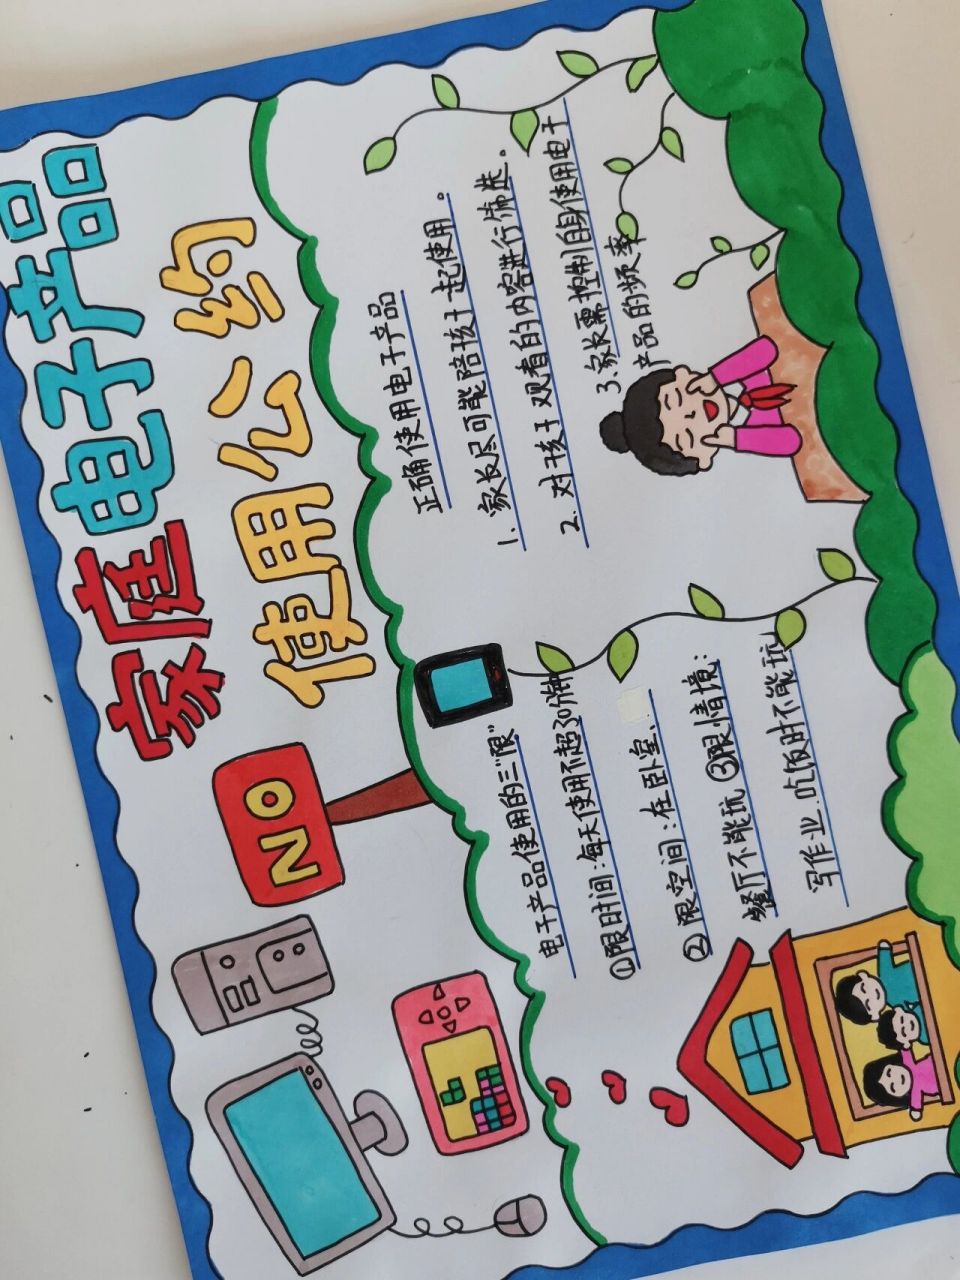 家庭电子产品
使用公约
NO
电子产品使用的三"限"
①限时间:每天使用不超30分钟
②限空间:在卧室、
餐厅不能玩③限情境:
写作业.吃饭时不能玩
正确使用电子产品
1.家长尽可能陪孩子一起使用。
2.对孩子观看的内容进行筛选。
3.家长需控制自身使用电子
产品的频率